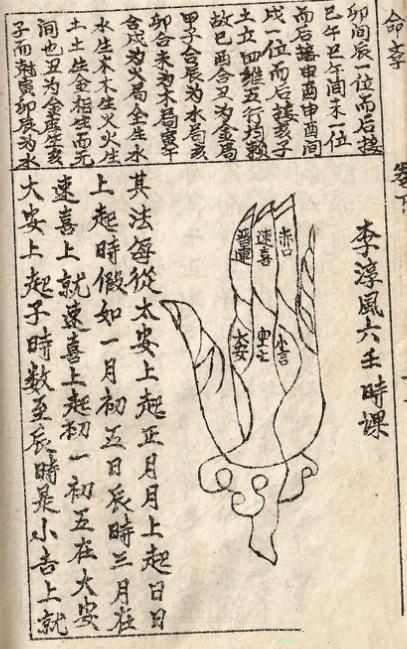 命
卷下
卯间辰一位而后接
巳午巳午间未一位
而后接申酉申酉间
戌一位而后接亥子
土立四维五行均赖
故巳酉合丑为金局
甲子合辰为水局亥
卯合未为木局寅午
合戌为火局金生水
水生木木生火火生
土土生金相生而无
间也丑为金局生亥
子而寅卯辰为水
李淳風六壬時課
赤口
速喜
連
小吉
空亡
大安
其法每從大安上起正月月上起日日
上起時假如一月初五日辰時三月在
速喜上就速喜上起初一初五在大安
大安上起子時数至辰時是小吉上就